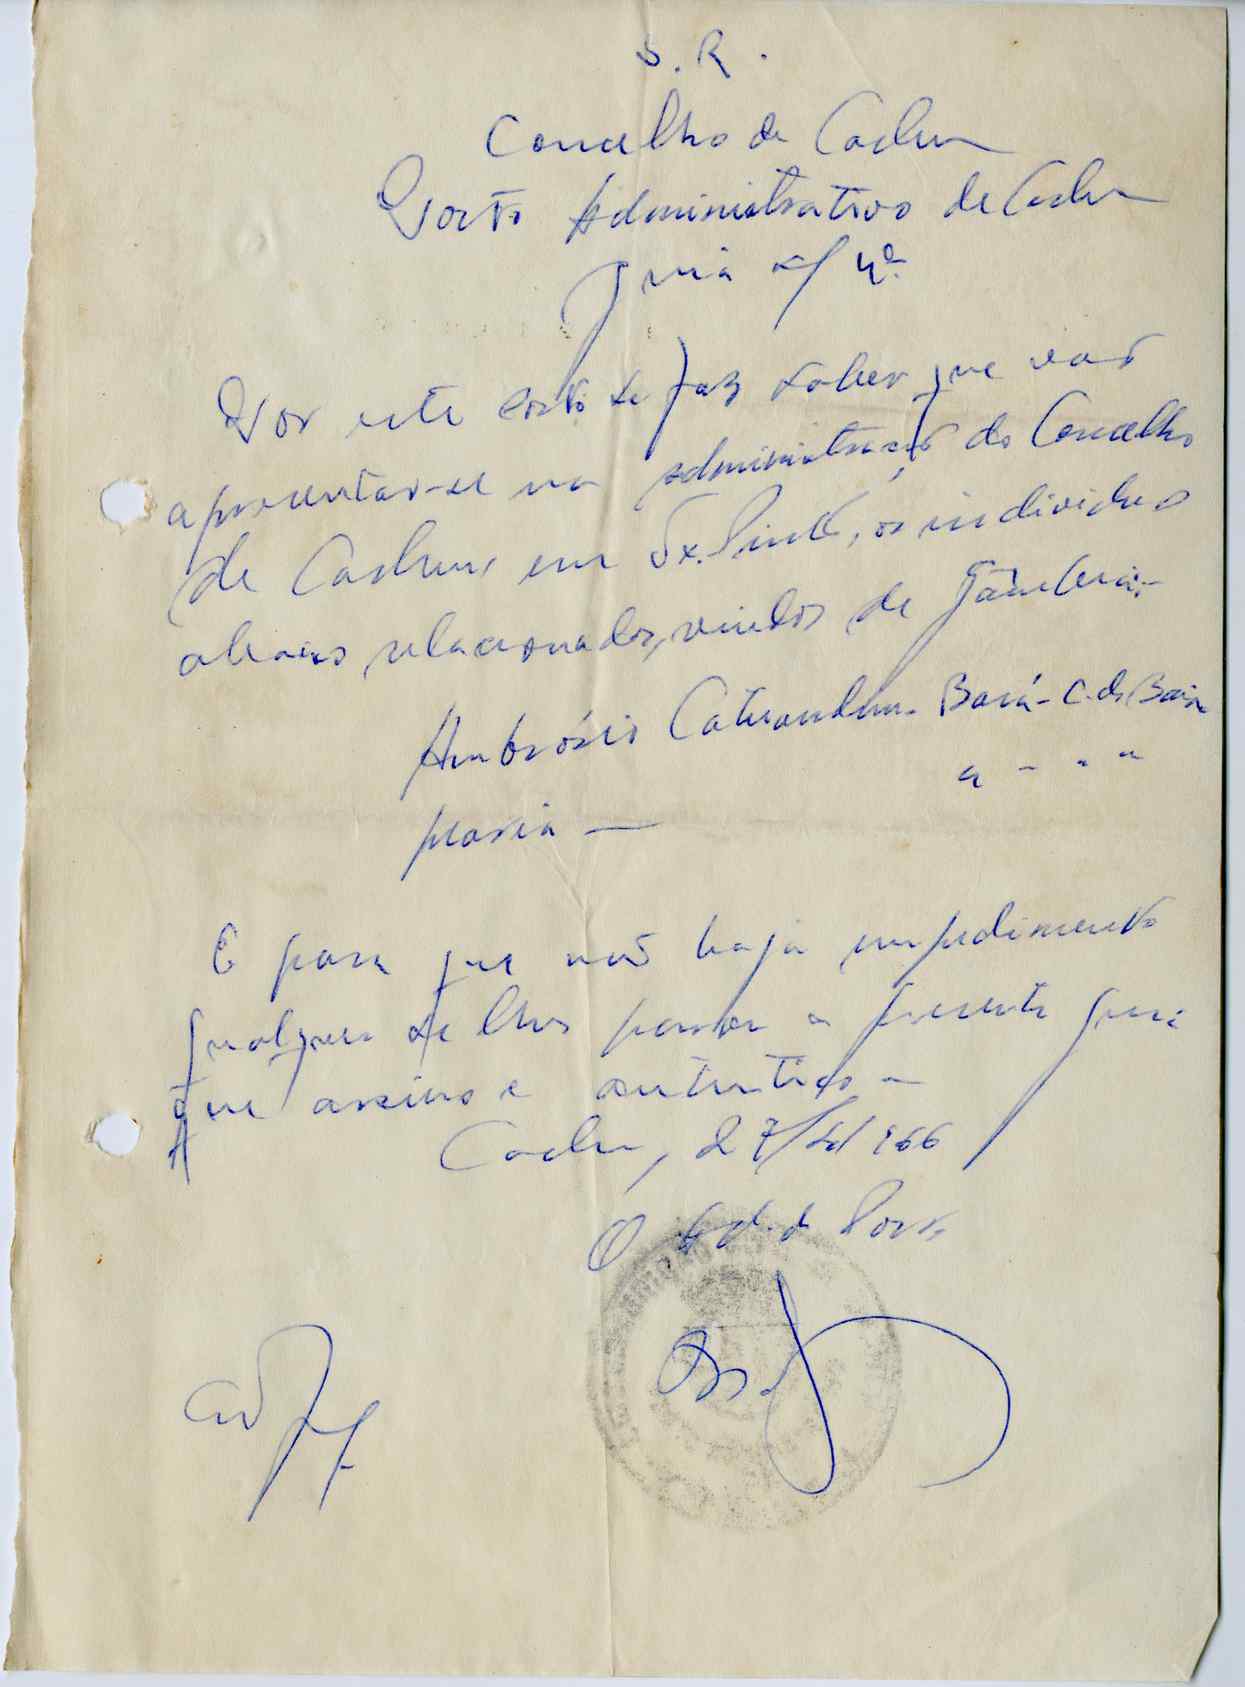 S. R.
Concelho de Cacheu
Posto Administrativo de Cacheu
Guia s/ nº
Por este posto se faz saber que vão
apresentar-se na administração do Concelho
de Cacheu, em Tx. Pinto, os individuos
abaixo relacionados, vindos de Gâmbia:-
Ambrósio Caterandem - Bará - C. do Baio
" - " "
Maria —
E para que não haja impedimento
qualquer se lhes passou a presente guia
que assino e autentico -
Cacheu, 27/Set 966
O Ad. de Posto